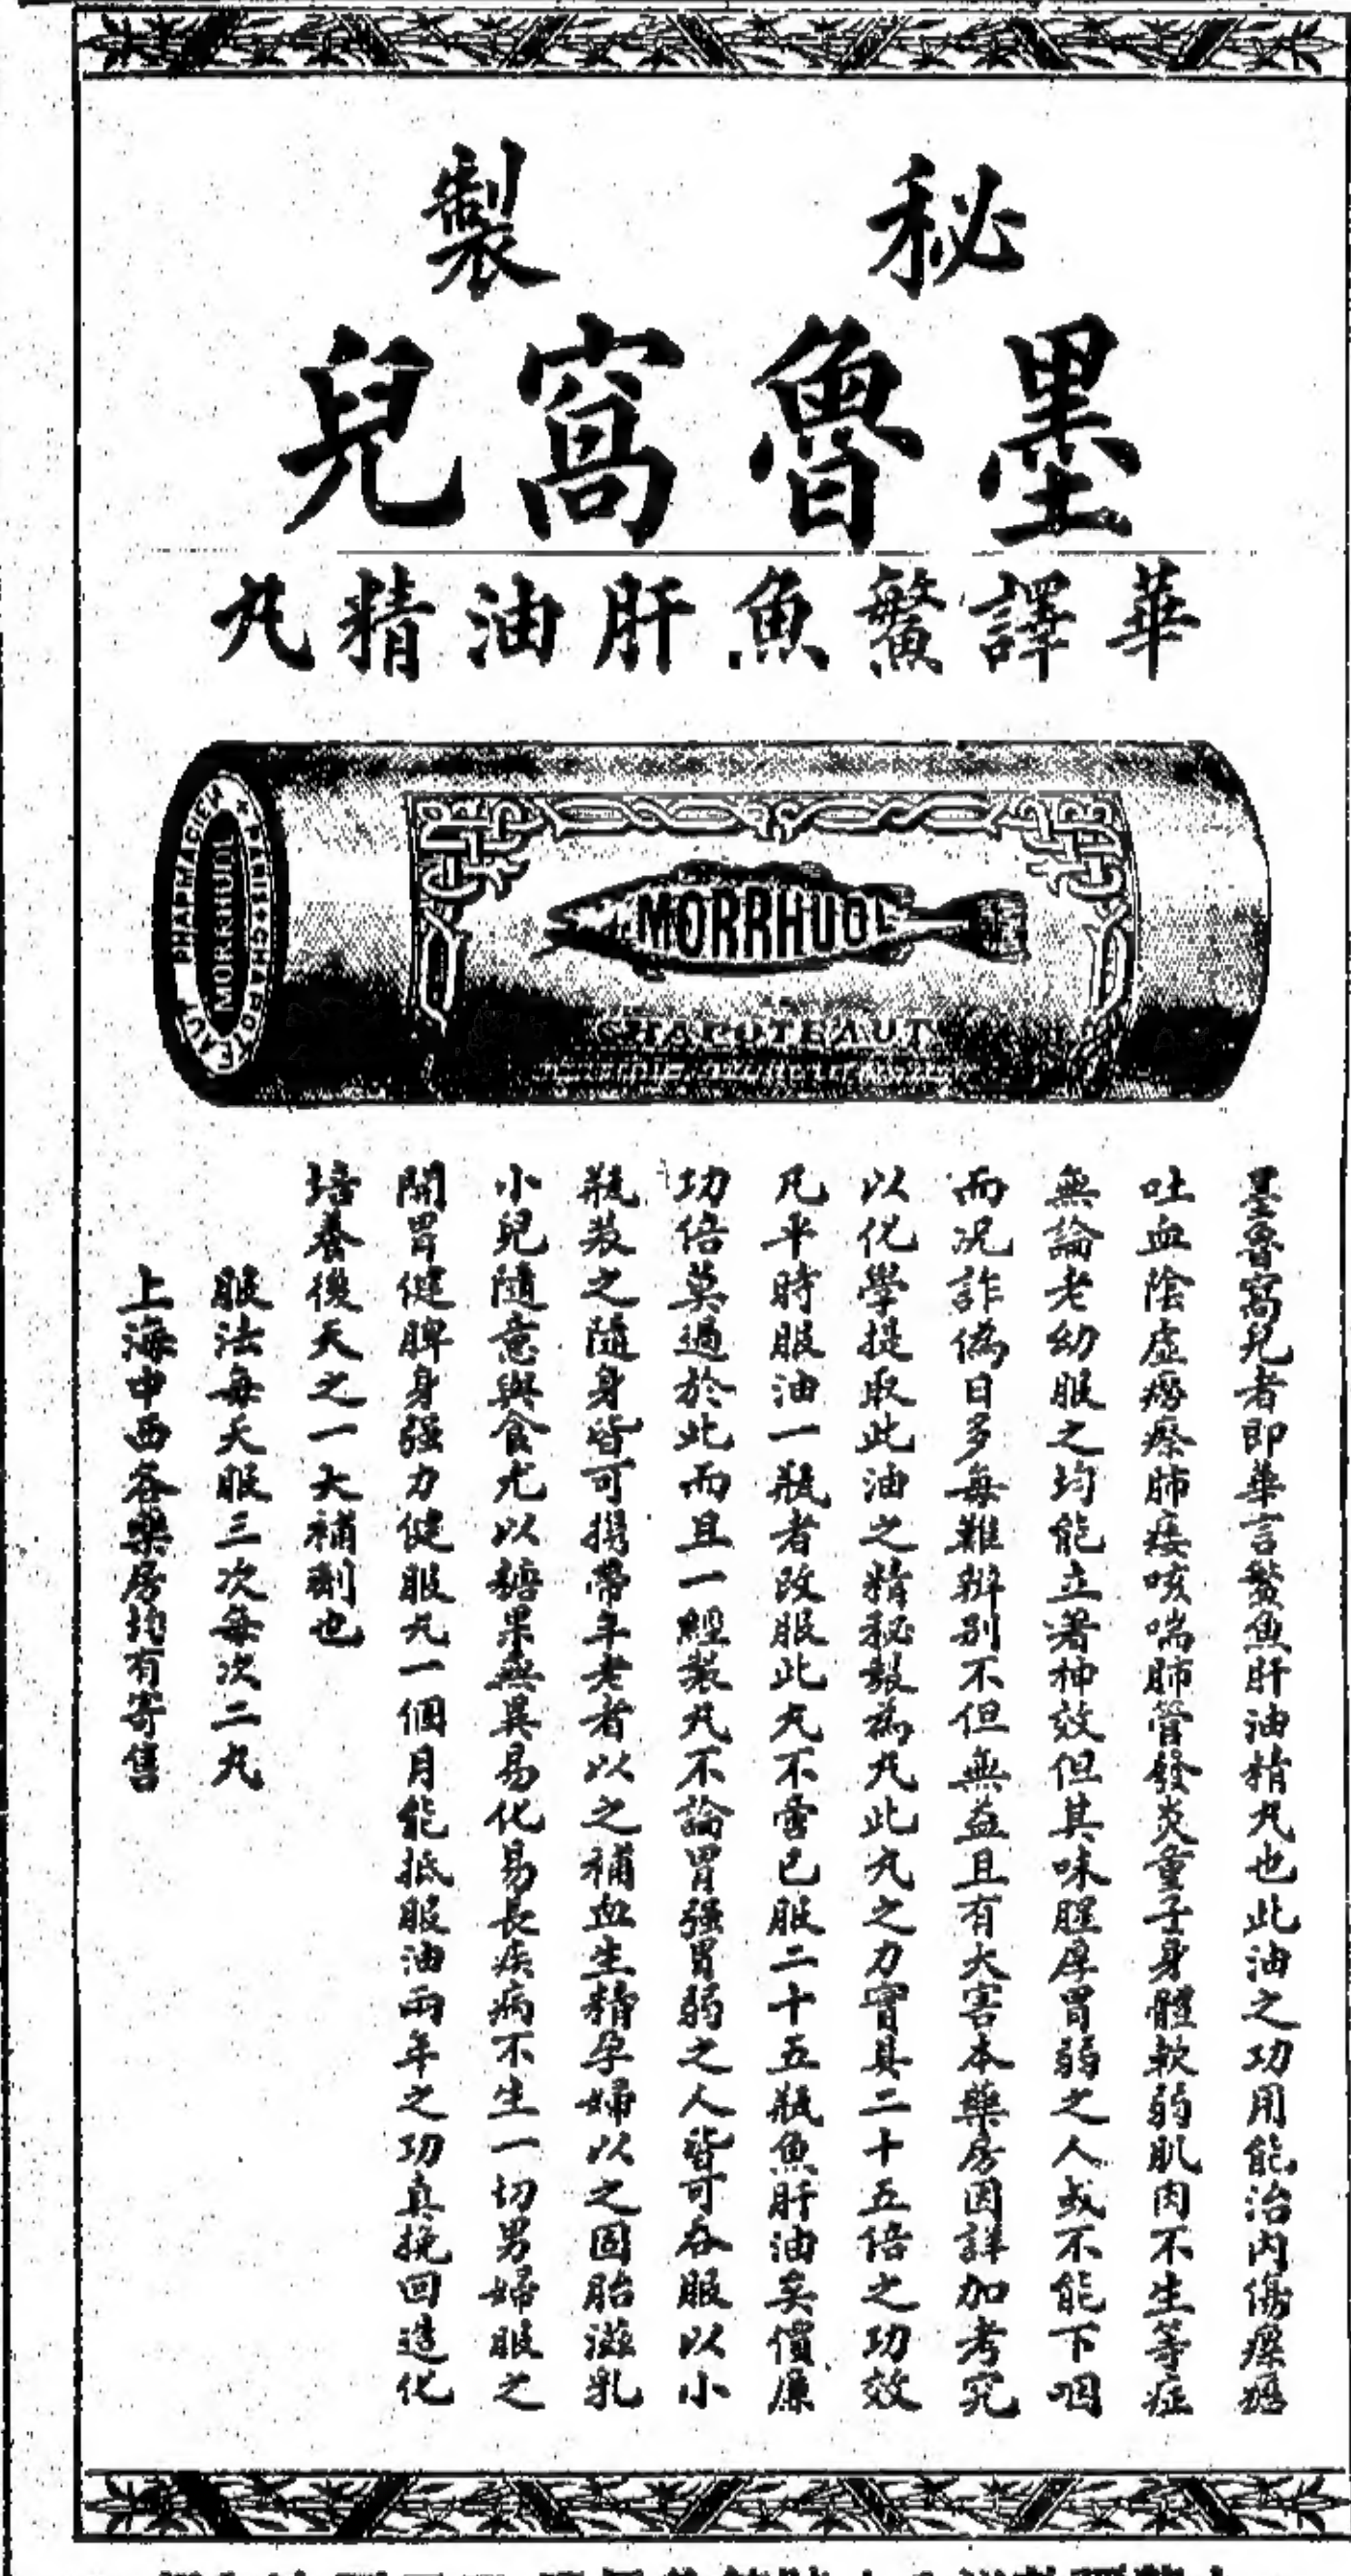 秘製
墨魯窩兒
華譯鱉魚肝油精丸
PHARMACIEN + PARIS + CHAPOTEAUT
MORRHUOL
MORRHUOL
CHAPOTEAUT
墨魯窩兒者即華言鱉魚肝油精丸也此油之功用能治內傷瘰癧
吐血陰虛癆瘵肺痿咳喘肺管發炎童子身體軟弱肌肉不生等症
無論老幼服之均能立著神效但其味腥厚胃弱之人或不能下咽
而况詐偽日多每難辨别不但無益且有大害本藥房因詳加考究
以化學提取此油之精秘製為丸此丸之力實具二十五倍之功效
凡平時服油一瓶者改服此丸不啻已服二十五瓶魚肝油矣價廉
功倍莫過於此而且一經製丸不論胃强胃弱之人皆可吞服以小
瓶裝之隨身皆可攜帶年老者以之補血生精孕婦以之固胎滋乳
小兒隨意與食尤以糖果無異易化易長疾病不生一切男婦服之
開胃健脾身强力健服丸一個月能抵服油兩年之功真挽回造化
培養後天之一大補劑也
服法每天服三次每次二丸
上海中西各藥房均有寄售